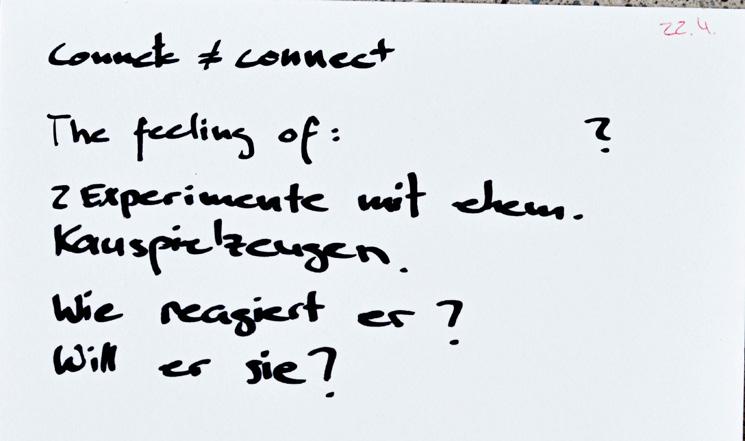 22.4.
connck ≠ connect
The feeling of: ?
2 Experimente mit ehem.
Kauspielzeugen.
Wie reagiert er?
Will er sie?